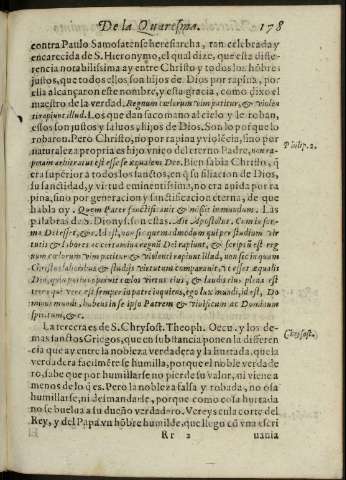 De la Quaresma. 178
contra Paulo Samosatense heresiarcha, tan celebrada y
encarecida de S. Hieronymo, el qual dize, que esta dife-
rencia notabilissima ay entre Christo y todos los hõbres
justos, que todos ellos son hijos de Dios por rapiña, por
ella alcançaron este nombre, y esta gracia, como dixo el
maestro de la verdad. Regnum cælorum vim patitur, & violen
ti rapiunt illud. Los que dan saco mano al cielo y le roban,
essos son justos y saluos, hijos de Dios. Son lo porque lo
robaron. Pero Christo, no por rapiña y violẽcia, sino por
naturaleza propria es hijo vnico del eterno Padre, non ra-
Philip. 2.
pinam arbitratus est esse se æqualem Deo. Bien sabia Christo, q̃
era superior a todos los sanctos, en q̃ su filiacion de Dios,
su sanctidad, y virtud eminentissima, no era auida por ra
piña, sino por generacion y sanctificacion eterna, de que
habla oy. Quem Pater sanctificauit & misit in mundum. Las
palabras de S. Dionys. son estas. Ait Apostolus. Cum in for-
ma Dei esset, &c. Id est, non sic quemadmodum qui per studium vir
tutis & labores ac certamina regnũ Dei rapiunt, & scriptũ est reg
num cælorum vim patitur & violenti rapiunt illud, non sic inquam
Christus laboribus & studijs virtutum comparauit, vt esset æqualis
Deo,
tor qui vere est semper in patre loquens, ego lux mundi, id est, Do
minus mundi, habui in se ipso Patrem & viuificum ac Donandum
spiritum, &c.
La tercera es de S. Chrysost. Theoph. Oecu. y los de-
Chrysost.
mas sanctos Griegos, que en substancia ponen la differen
cia que ay entre la nobleza verdadera y la hurtada, que la
verdadera facilmẽte se humilla, porque el noble verdade
ro, sabe que por humillarse no pierde su valor, ni viene a
menos de lo q̃ es. Pero la nobleza falsa y robada, no osa
humillarse, ni desmandarse, porque como cosa hurtada
no se buelua a su dueño verdadero. Vereys en la corte del
Rey, y del Papa vn hõbre humilde, que llego cõ vna escri
Rr 2 uania